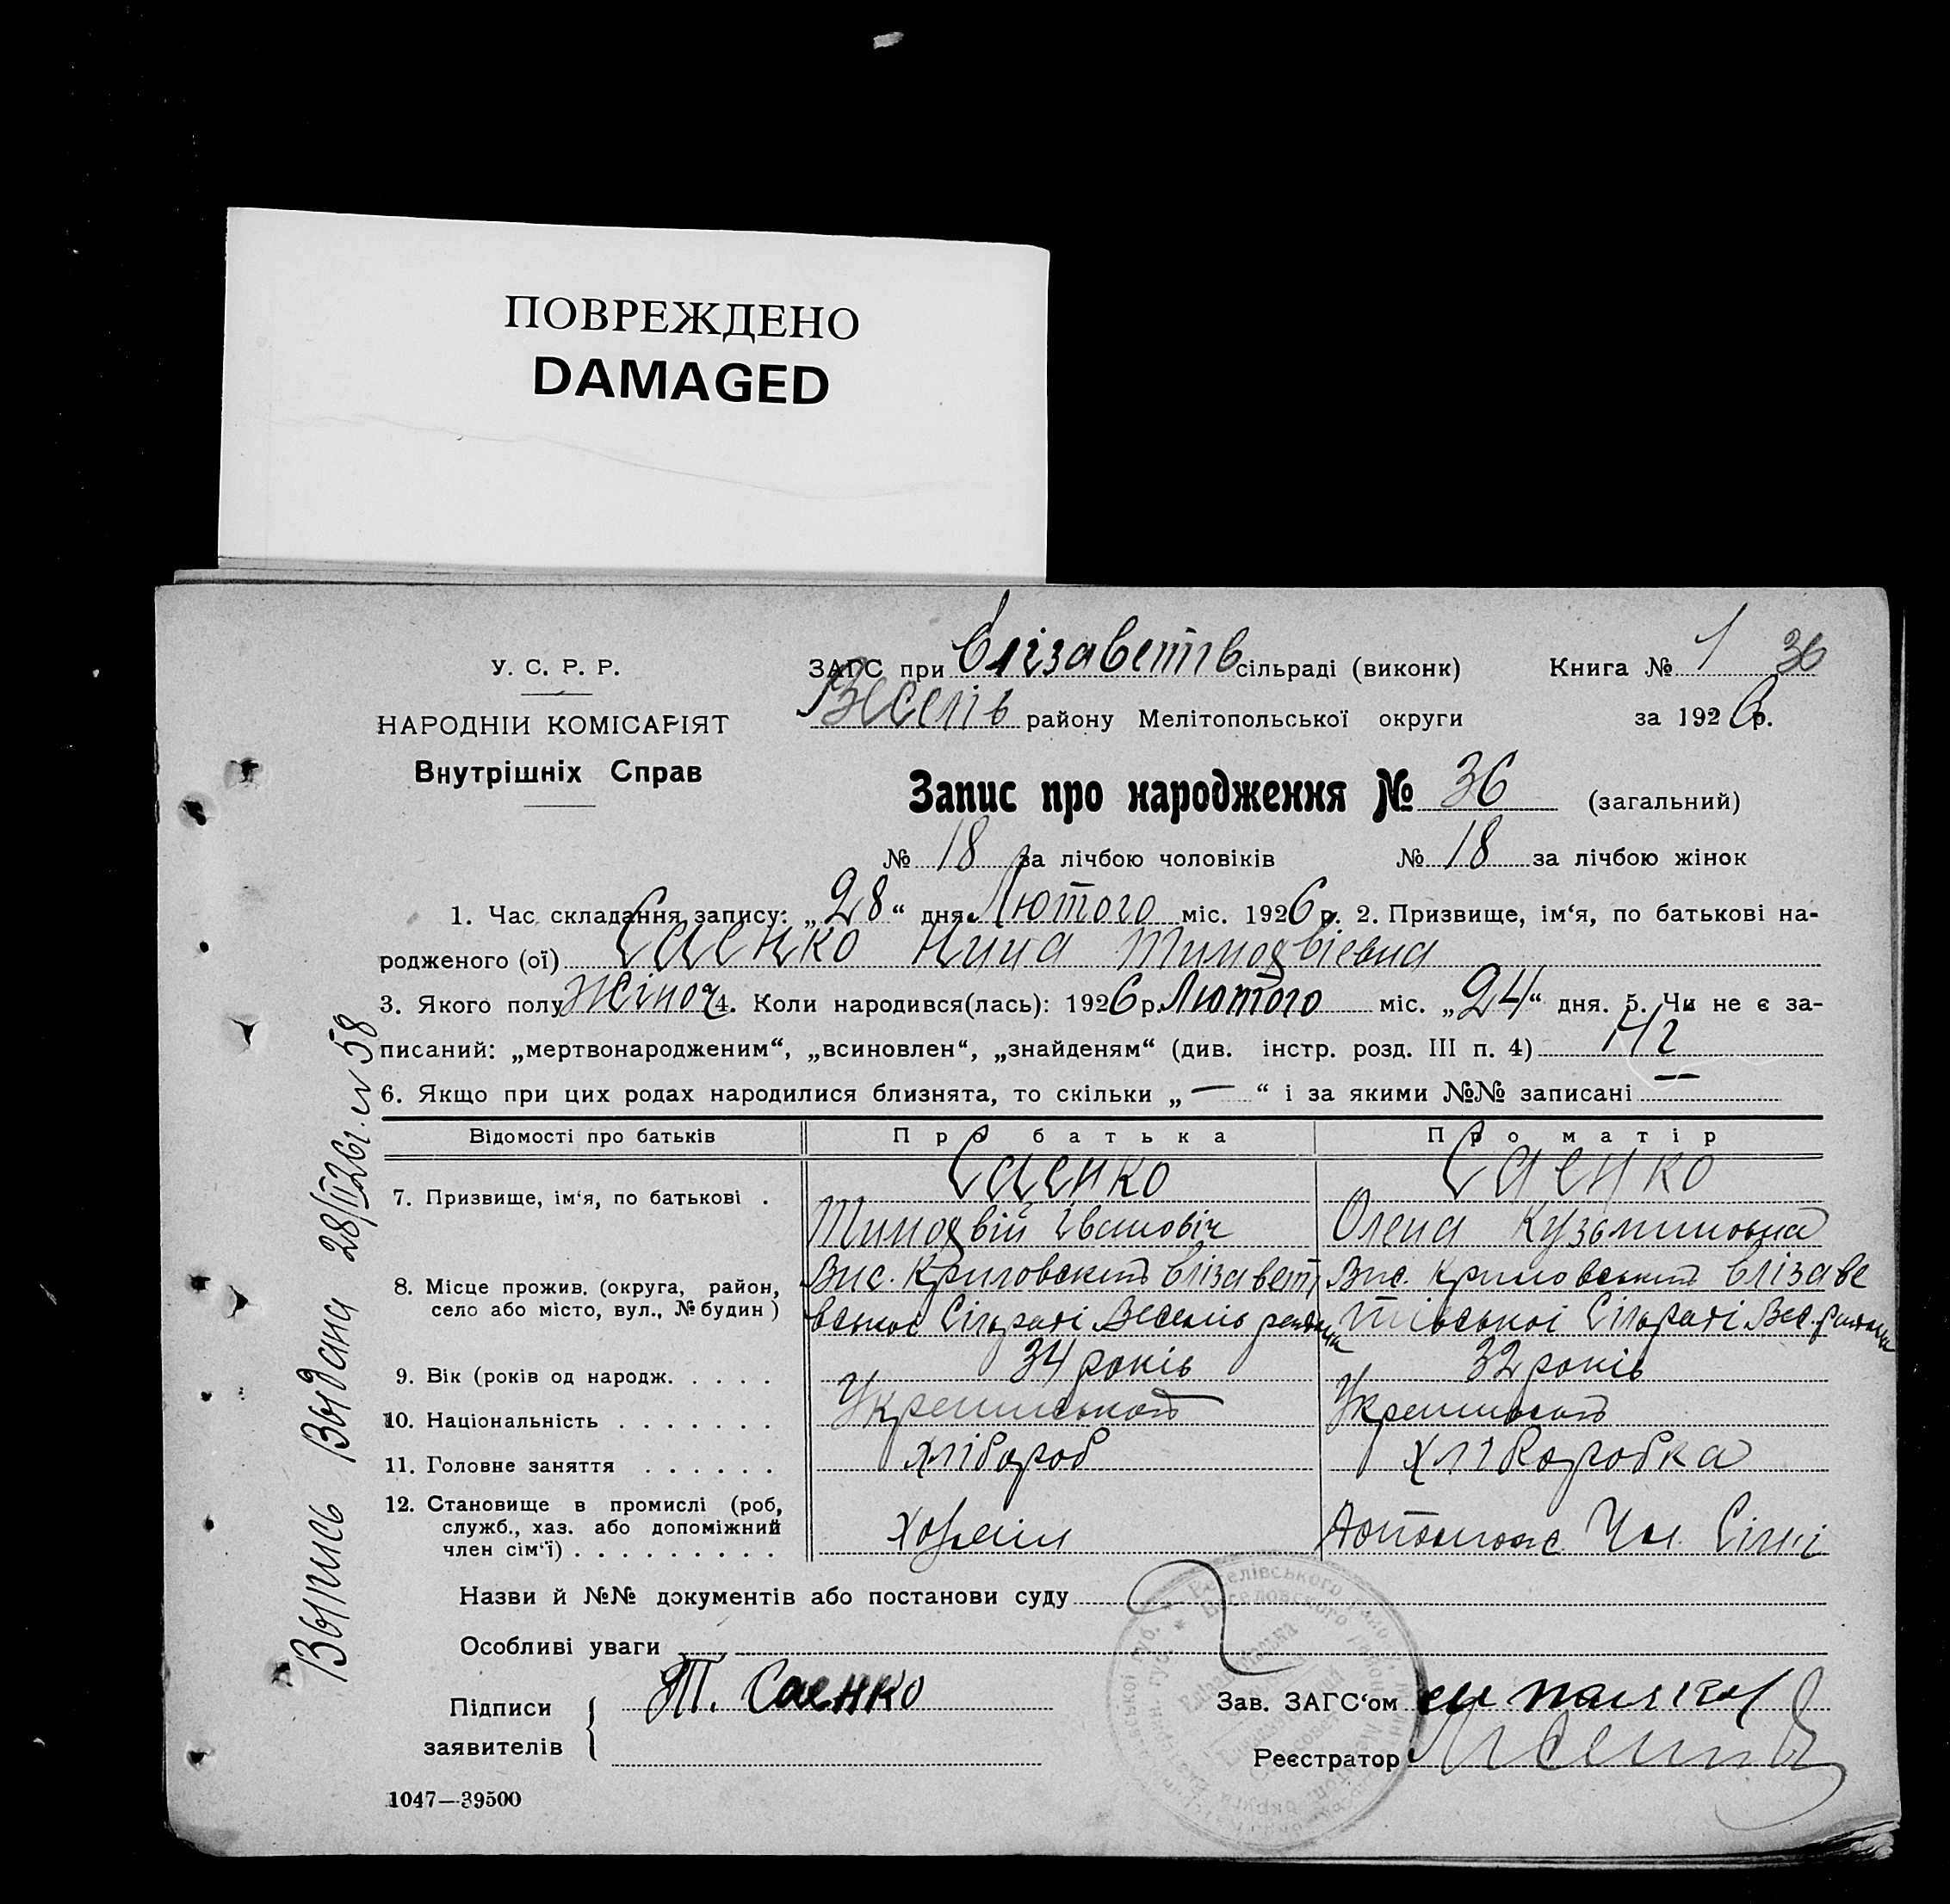 ПОВРЕЖДЕНО
DAMAGED
У. С. Р. Р.
НАРОДНІЙ КОМІСАРІЯТ
Внутрішніх Справ
ЗАГС при Єлізаветів сільраді (виконк) Книга № 1 36
Веселів району Мелітопольської округи за 1926 р.
Запис про народження № 36 (загальний)
№ 18 за лічбою чоловіків № 18 за лічбою жінок
1. Час складання запису: „28“ дня Лютого міс. 1926 р. 2. Призвище, ім‘я, по батькові на-
родженого (ої) Саенко Нина Тимофвіевна
3. Якого полу Жіноч 4. Коли народився(лась): 1926 р. Лютого міс. „24“ дня. 5. Чи не є за-
писаний: „мертвонародженим“, „всиновлен“, „знайденям“ (див. інстр. розд. III п. 4) Ні
6. Якщо при цих родах народилися близнята, то скільки „ — “ і за якими №№ записані —
Відомості про батьків Про батька Про матір
7. Призвище, ім‘я, по батькові . Саенко Саенко
Тимофвій Іванович Олена Кузьминовна
8. Місце прожив. (округа, район, Вис. Єлізавет Вис. Єлізаве
село або місто, вул., № будин ) вської Сільраді Веселів району тівської Сільраді Вес. району
9. Вік (років од народж. . . . . 34 років 32 років
10. Національність . . . . . . .
11. Головне заняття . . . . . . хлібороб хліборобка
12. Становище в промислі (роб,
служб., хаз. або допоміжний
член сім‘ї) . . . . . . . . . хозяїн Чл. Сімі
Назви й №№ документів або постанови суду
Особливі уваги
Підписи Т. Саенко Зав. ЗАГС‘ом
заявителів Реєстратор
1047—39500
Выпись Выдана 28/II 26 г. № 58